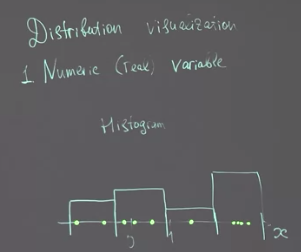 Distribution visualization
1. Numeric (real) variable
Histogram
x